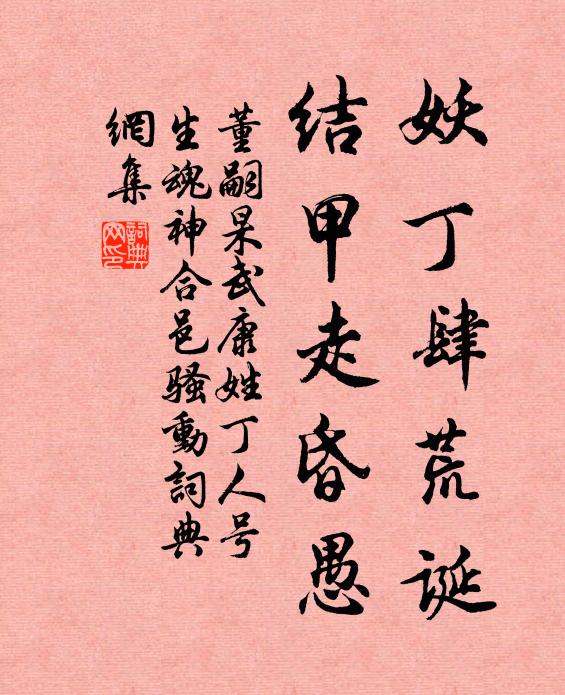 妖丁肆荒誕
結甲走昏愚
董嗣杲武康姓丁人号
生魂神合邑騷動詞典
網集
詞典
网印